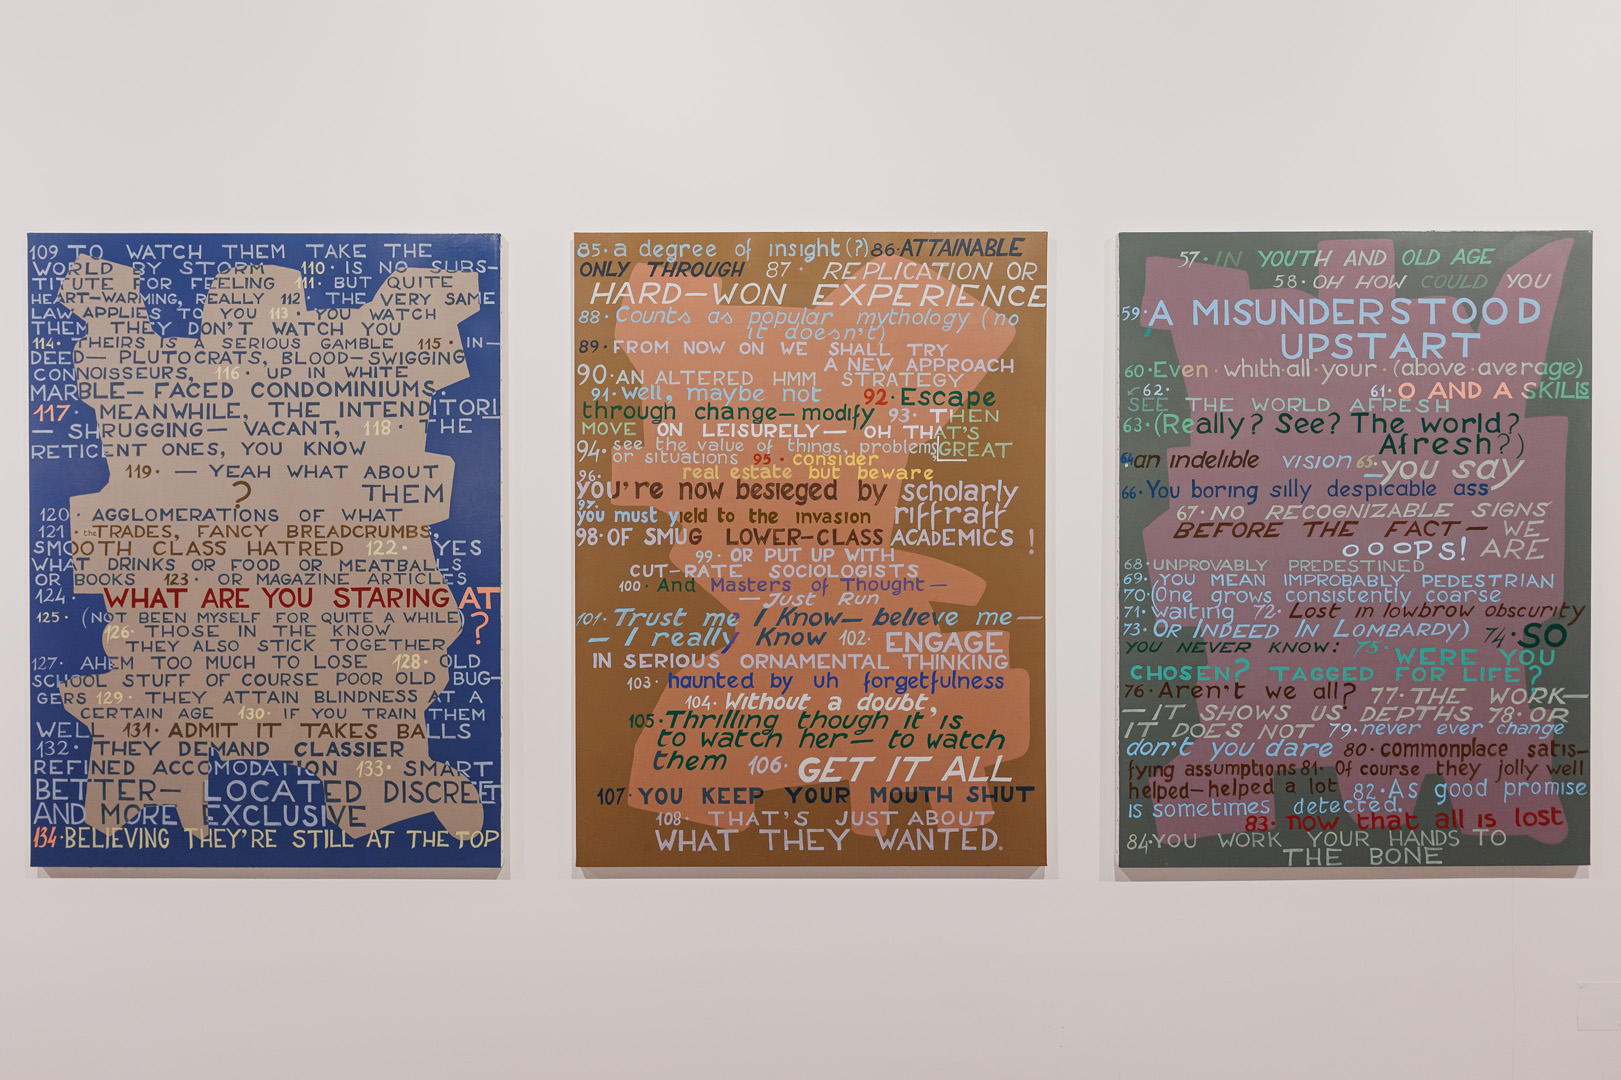 109 TO WATCH THEM TAKE THE
WORLD BY STORM 110· IS NO SUBS-
TITUTE FOR FEELING 111· BUT QUITE
HEART-WARMING, REALLY 112· THE VERY SAME
LAW APPLIES TO YOU 113· YOU WATCH
THEM THEY DON'T WATCH YOU
114· THEIRS IS A SERIOUS GAMBLE 115· IN-
DEED- PLUTOCRATS, BLOOD-SWIGGING
CONNOISSEURS, 116· UP IN WHITE
MARBLE-FACED CONDOMINIUMS.
117· MEANWHILE, THE INTENDITORI
- SHRUGGING- VACANT, 118· THE
RETICENT ONES, YOU KNOW
119· - YEAH WHAT ABOUT
? THEM
120· AGGLOMERATIONS OF WHAT
121 ·the TRADES, FANCY BREADCRUMBS,
SMOOTH CLASS HATRED 122· YES
WHAT DRINKS OR FOOD OR MEATBALLS
OR BOOKS 123· OR MAGAZINE ARTICLES
124· WHAT ARE YOU STARING AT
125· (NOT BEEN MYSELF FOR QUITE A WHILE) ?
126· THOSE IN THE KNOW
THEY ALSO STICK TOGETHER
127· AHEM TOO MUCH TO LOSE 128· OLD
SCHOOL STUFF OF COURSE POOR OLD BUG-
GERS 129· THEY ATTAIN BLINDNESS AT A
CERTAIN AGE 130· IF YOU TRAIN THEM
WELL 131· ADMIT IT TAKES BALLS
132· THEY DEMAND CLASSIER
REFINED ACCOMODATION 133· SMART
BETTER-LOCATED DISCREET
AND MORE EXCLUSIVE
134·BELIEVING THEY'RE STILL AT THE TOP
85· a degree of insight(?) 86·ATTAINABLE
ONLY THROUGH 87· REPLICATION OR
HARD-WON EXPERIENCE
88· Counts as popular mythology (no
it doesn't)
89· FROM NOW ON WE SHALL TRY
A NEW APPROACH
90·AN ALTERED HMM STRATEGY
91·well, maybe not 92·Escape
through change-modify 93· THEN
MOVE ON LEISURELY- OH THAT'S
94· see the value of things, problems GREAT
or situations 95· consider
96· real estate but beware
you're now besieged by scholarly
97· you must yield to the invasion riffraff
98·OF SMUG LOWER-CLASS ACADEMICS !
99· OR PUT UP WITH
CUT-RATE SOCIOLOGISTS
100· And Masters of Thought-
-Just Run
101· Trust me I Know- believe me-
- I really Know 102· ENGAGE
IN SERIOUS ORNAMENTAL THINKING
103· haunted by uh forgetfulness
104· Without a doubt,
105·Thrilling though it is
to watch her- to watch
them 106· GET IT ALL
107·YOU KEEP YOUR MOUTH SHUT
108· THAT'S JUST ABOUT
WHAT THEY WANTED.
57· IN YOUTH AND OLD AGE
58· OH HOW COULD YOU
59·A MISUNDERSTOOD
UPSTART
60·Even whith·all your (above average)
62· 61· O AND A SKILLS
SEE THE WORLD AFRESH
63·(Really? See? The world?
Afresh?)
64·an indelible vision 65·-you say
66·You boring silly despicable ass
67·NO RECOGNIZABLE SIGNS
BEFORE THE FACT- WE
OOOPS! ARE
68·UNPROVABLY PREDESTINED
69·(YOU MEAN IMPROBABLY PEDESTRIAN
70·(One grows consistently coarse
71·waiting 72· Lost in lowbrow obscurity
73·OR INDEED IN LOMBARDY) 74·SO
YOU NEVER KNOW: 75·WERE YOU
CHOSEN? TAGGED FOR LIFE?
76·Aren't we all? 77·THE WORK-
-IT SHOWS US DEPTHS 78·OR
IT DOES NOT 79·never ever change
don't you dare 80·commonplace satis-
fying assumptions 81· Of course they jolly well
helped-helped a lot 82·As good promise
is sometimes detected,
83· now that all is lost
84·YOU WORK YOUR HANDS TO
THE BONE